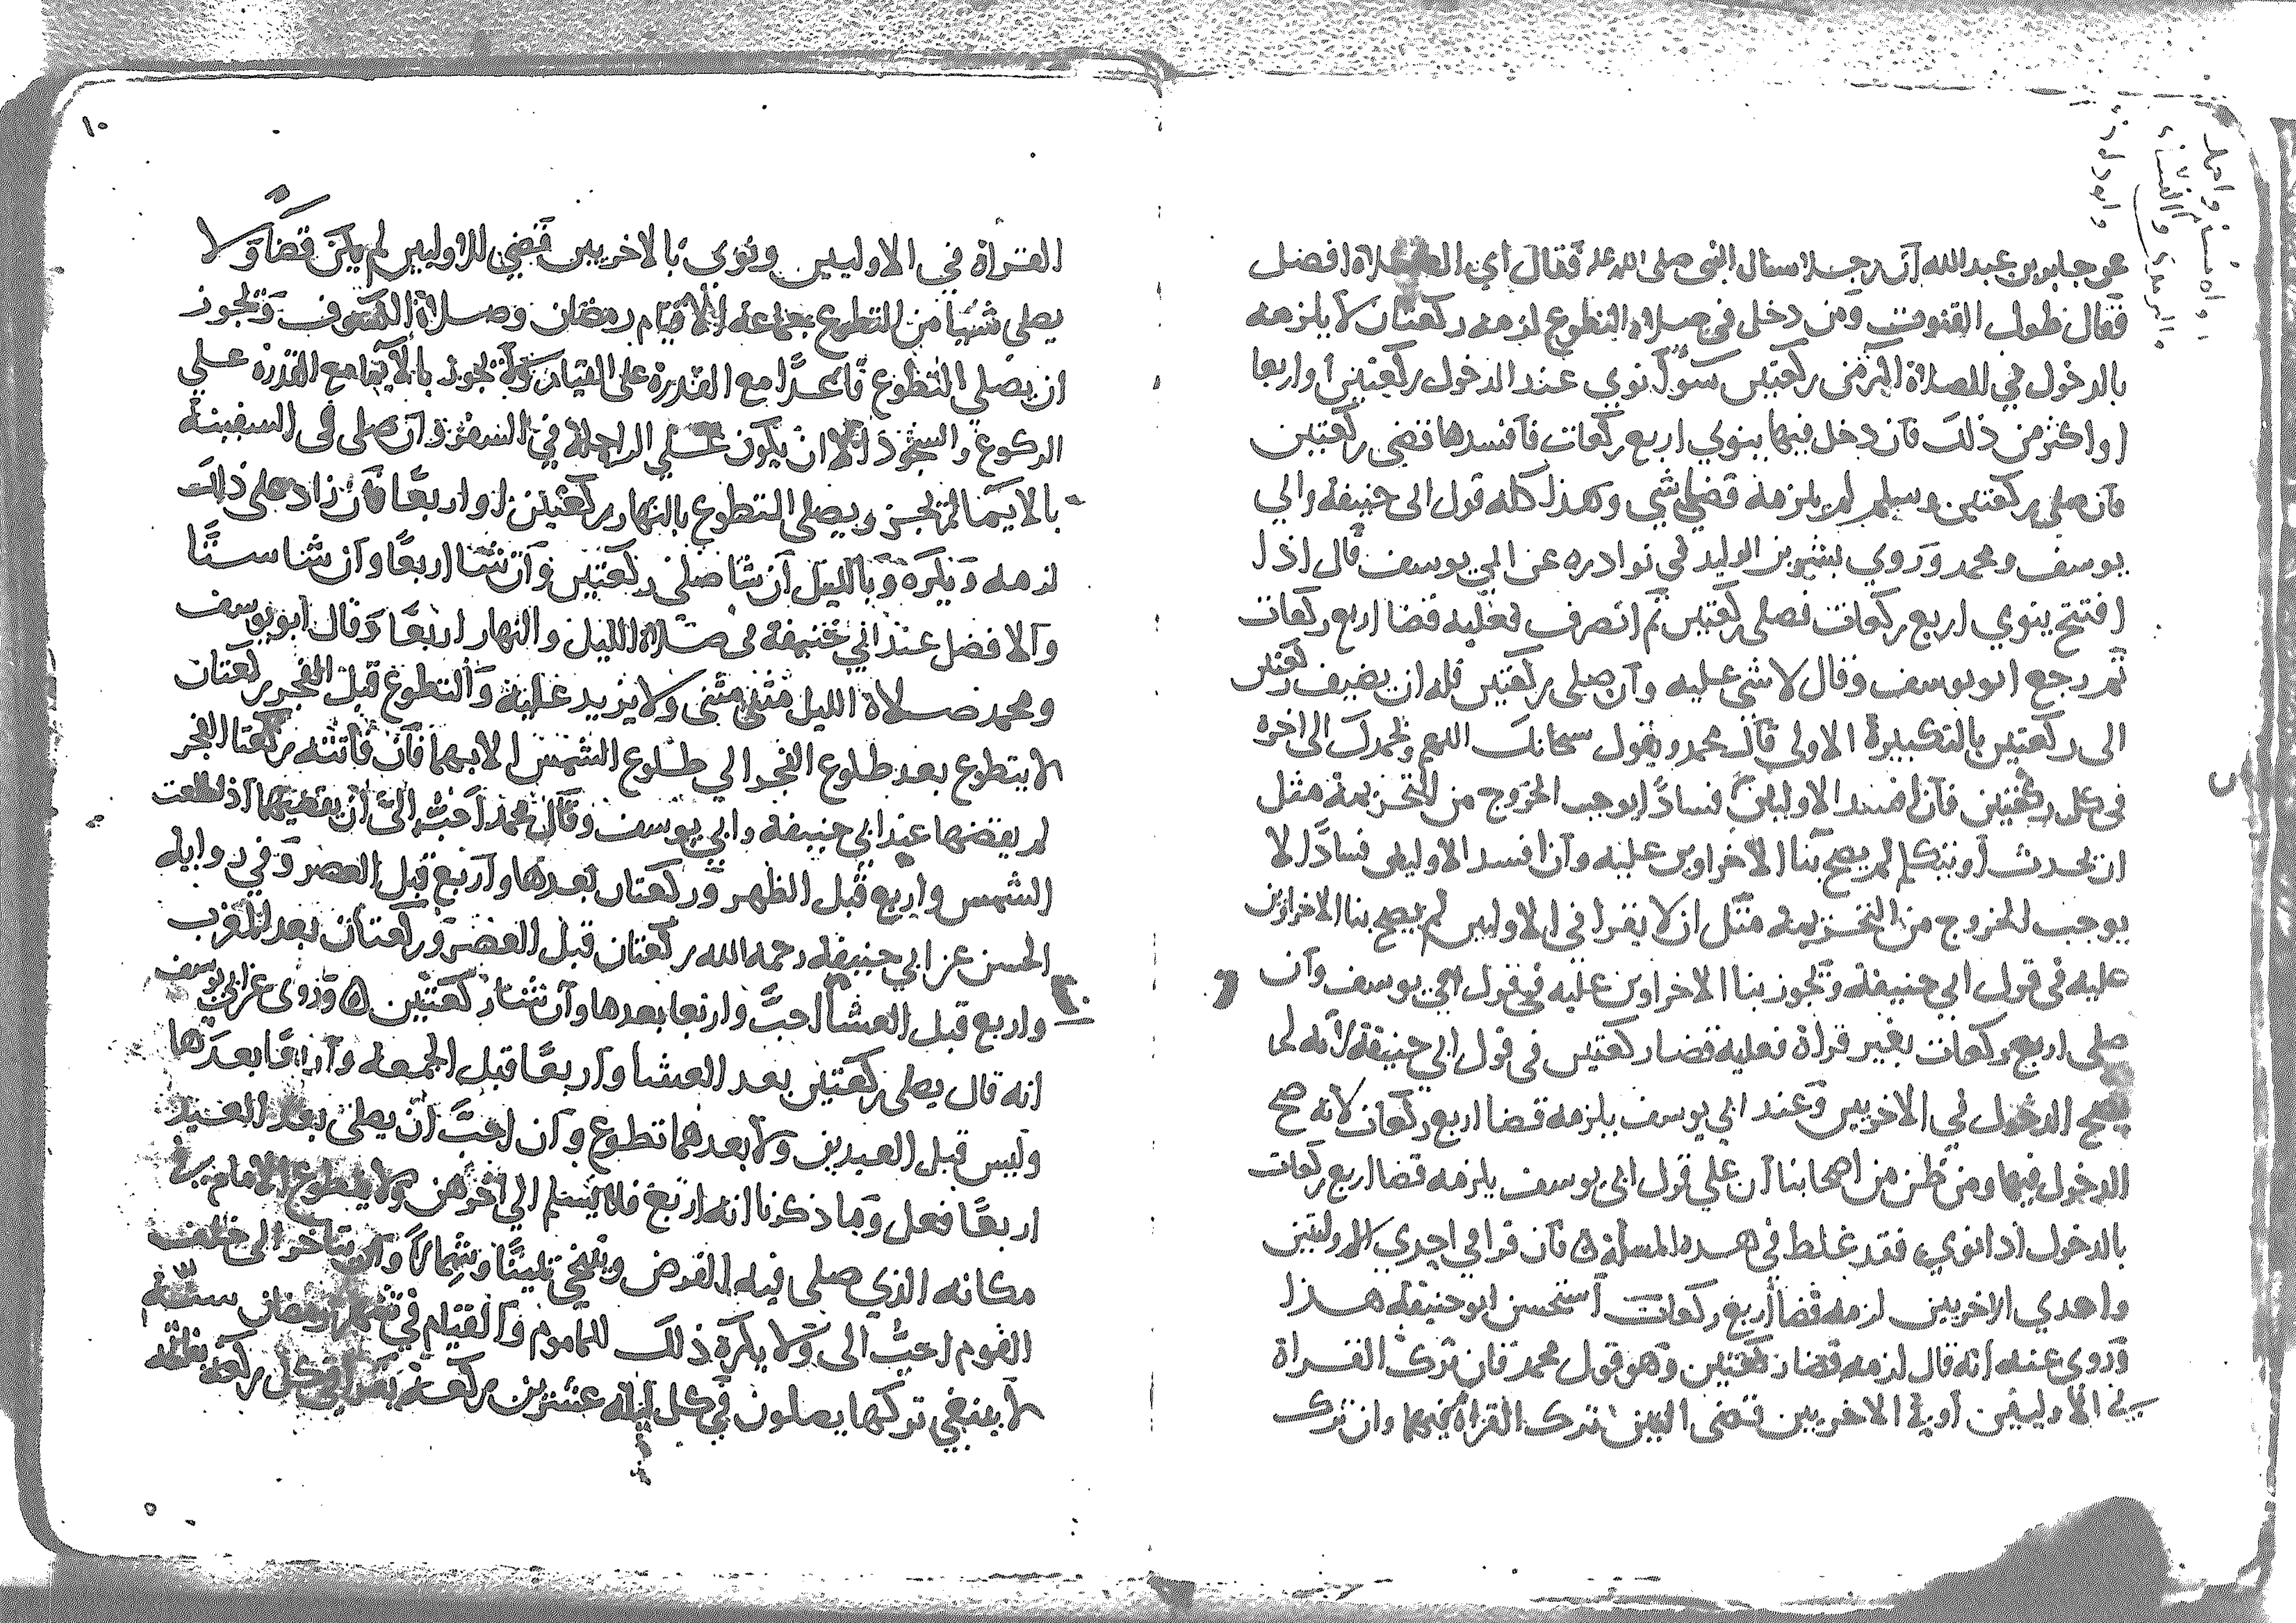 عن جابر بن عبد الله ان رجلا سال النبي صلى الله عليه فقال اي الصلاة افضل
فقال طول القنوت ومن دخل في صلاة التطوع لزمه ركعتان لا يلزمه
بالدخول في الصلاة اكثر من ركعتين سوا نوي عند الدخول ركعتين او اربعا
او اكثر من ذلك فان دخل فيها ينوي اربع ركعات فافسدها قضى ركعتين
فان صلى ركعتين وسلم لم يلزمه قضا شي وهذا كله قول ابي حنيفة وابي
يوسف ومحمد وروي بشر بن الوليد في نوادره عن ابي يوسف قال اذا
افتتح ينوي اربع ركعات فصلى ركعتين ثم انصرف فعليه قضا اربع ركعات
ثم رجع ابو يوسف وقال لا شي عليه وان صلى ركعتين فله ان يضيف ركعتين
الى ركعتين بالتكبيرة الاولى قال محمد ويقول سبحانك اللهم وبحمدك الى اخره
في كل ركعتين فان افسد الاوليين فسادا يوجب الخروج من التحريمة مثل
ان يحدث او يتكلم لم يصح بنا الاخراوين عليه وان افسد الاوليين فسادا لا
يوجب الخروج من التحريمة مثل ان لا يقرا في الاوليين لم يصح بنا الاخراوين
عليه في قول ابي حنيفة ويجوز بنا الاخراوين عليه في قول ابي يوسف وان
صلى اربع ركعات بغير قراة فعليه قضا ركعتين في قول ابي حنيفة لانه لم
يصح الدخول في الاخريين وعند ابي يوسف يلزمه قضا اربع ركعات لانه صح
الدخول فيها ومن ظن من اصحابنا ان علي قول ابي يوسف يلزمه قضا اربع ركعات
بالدخول اذا نوي فقد غلط في هذه المسلة ه فان قرا في احدي الاوليين
واحدي الاخريين لزمه قضا اربع ركعات استحسن ابو حنيفة هذا
وروى عنه انه قال لزمه قضا ركعتين وهو قول محمد فان ترك القراة
في الاوليين او في الاخريين قضى التين ترك القراة فيهما وان ترك
١٠
القراة في الاوليين ونوى بالاخريين قضى الاوليين لم يكن قضا ولا
يصلي شيا من التطوع بجماعة الا قيام رمضان وصلاة الكسوف ويجوز
ان يصلي التطوع قاعدا مع القدرة على القيام ولا يجوز بالايما مع القدرة علي
الركوع والسجود الا ان يكون علي الراحلة في السفر وان صلى في السفينة
بالايما لم يجز ويصلي التطوع بالنهار ركعتين او اربعا فان زاد على ذلك
لزمه ويكره وبالليل ان شا صلى ركعتين وان شا اربعا وان شا ستا
والافضل عند ابي حنيفة في صلاة الليل والنهار اربعا وقال ابو يوسف
ومحمد صلاة الليل مثنى مثنى ولا يزيد عليه والتطوع قبل الفجر ركعتان
لا يتطوع بعد طلوع الفجر الي طلوع الشمس الا بهما فان فاتته ركعتا الفجر
لم يقضها عند ابي حنيفة وابي يوسف وقال محمد احب الي ان يقضيهما اذا طلعت
الشمس واربع قبل الظهر وركعتان بعدها واربع قبل العصر وفي رواية
الحسن عن ابي حنيفة رحمه الله ركعتان قبل العصر وركعتان بعد المغرب
واربع قبل العشا احب واربعا بعدها وان شا ركعتين ه وروى عن ابي يوسف
انه قال يصلى ركعتين بعد العشا واربعا قبل الجمعه واربعا بعدها
وليس قبل العيدين ولا بعدهما تطوع وان احب ان يصلى بعد العيد
اربعا فعل وما ذكرنا انه اربع فلا يسلم الي اخرهن ولا يتطوع الامام في
مكانه الذي صلى فيه الفرض ويتنحى يمينا وشمالا وان يتاخر الى خلف
القوم احب الى ولا يكره ذلك للماموم والقيام في شهر رمضان سنة
لا ينبغي تركها يصلون في كل ليلة عشرين ركعة يقرا في كل ركعة